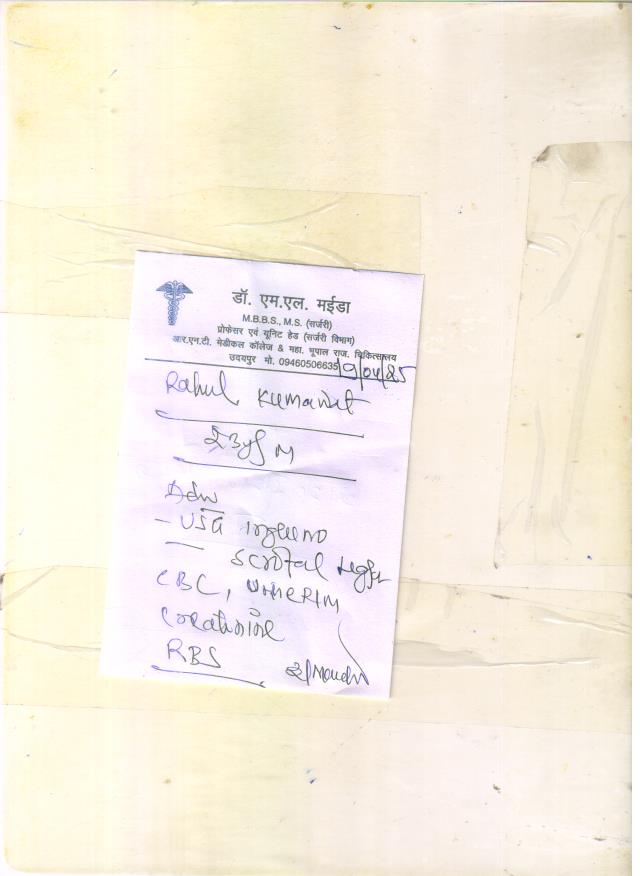 डॉ. एम.एल. मईडा
M.B.B.S., M.S. (सर्जरी)
प्रोफेसर एवं यूनिट हेड (सर्जरी विभाग)
आर.एन.टी. मेडीकल कॉलेज & महा. भूपाल राज. चिकित्सालय
उदयपुर मो. 09460506635
Rahul Kumawat
23y/ M
Adv
- USG Inguino
- Scrotal
CBC, Urine R/M
Creatinine
RBS